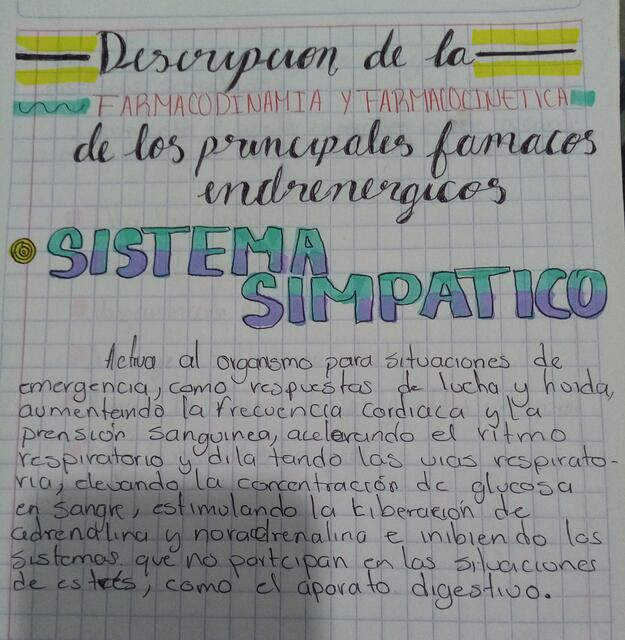 Descripcion de la
FARMACODINAMIA Y FARMACOCINETICA
de los principales famacos
endrenergicos
SISTEMA
SIMPATICO
Activa al organismo para situaciones de
emergencia, como respuestas de lucha y huida,
aumentando la frecuencia cardiaca y la
prensión sanguinea, acelerando el ritmo
respiratorio y dilatando las vias respirato-
ria, elevando la concentración de glucosa
en sangre, estimulando la liberación de
adrenalina y noradrenalina e inibiendo los
sistemas que no partcipan en las situaciones
de estrés, como el aparato digestivo.